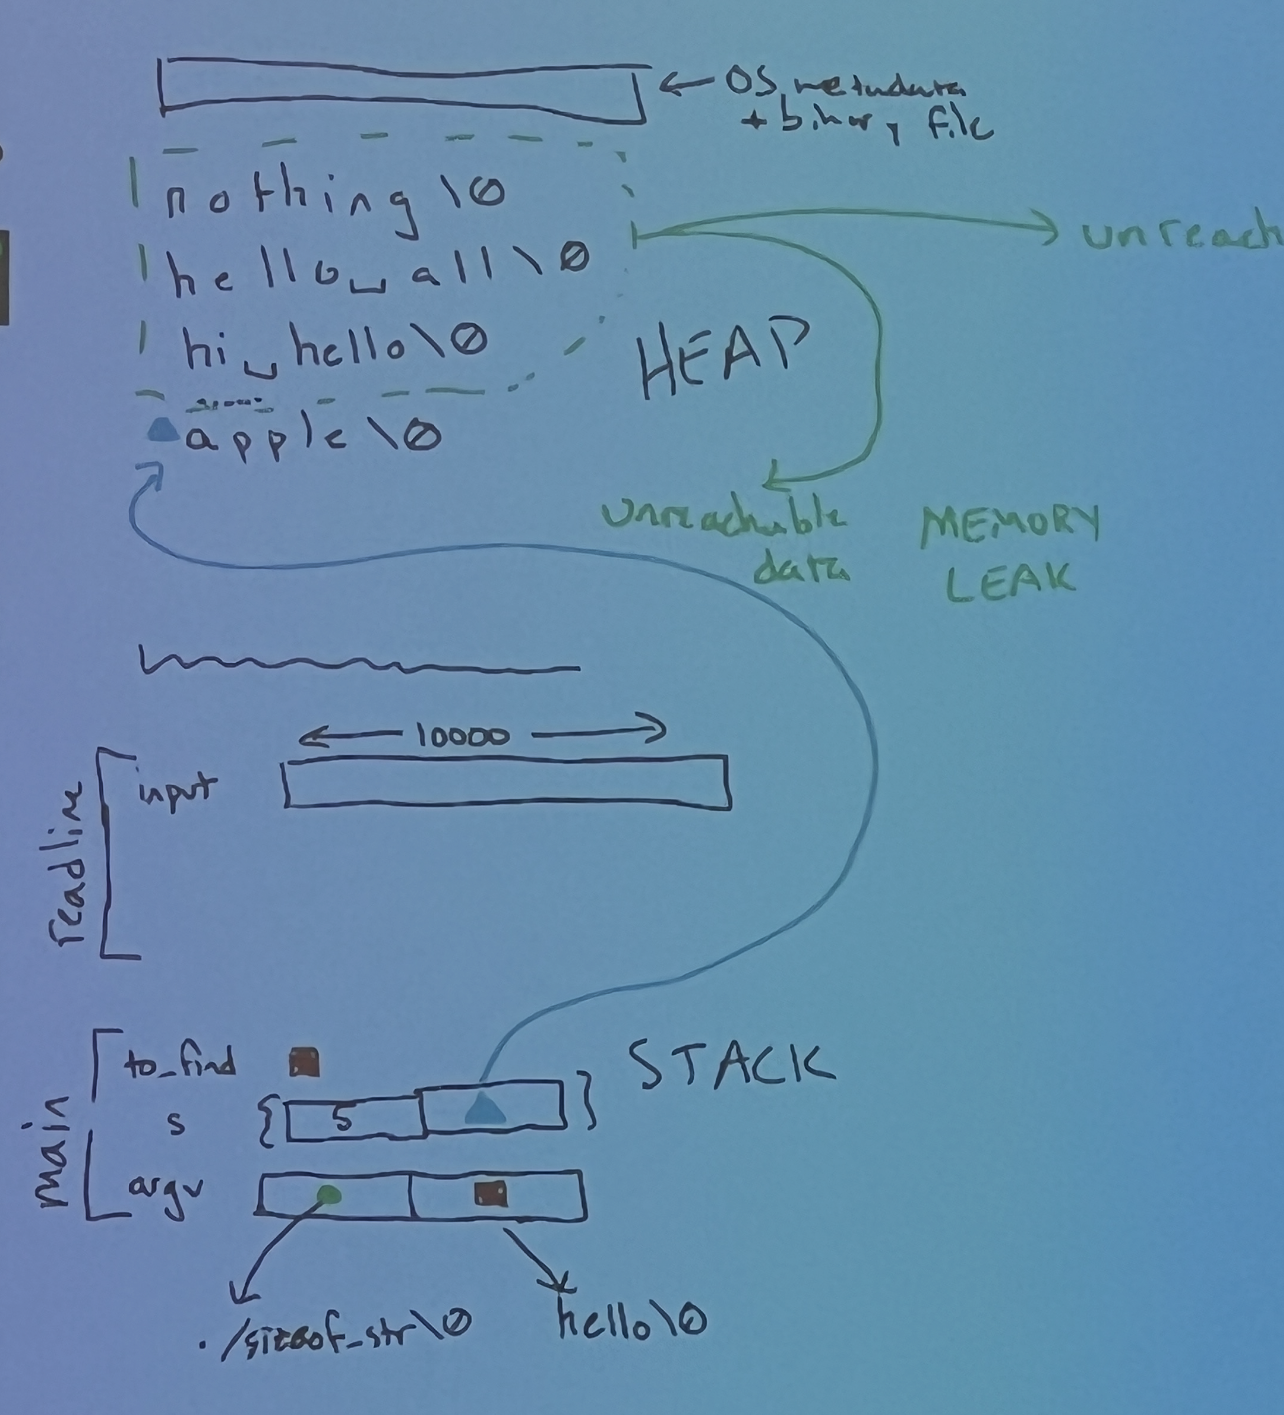 ← OS metadata
+ binary file
nothing\0
hello␣all\0
hi␣hello\0
apple\0
HEAP
unreach
unreachable
data
MEMORY
LEAK
10000
input
readline
main
to_find
s { 5 }
STACK
argv
./sizeof_str\0
hello\0